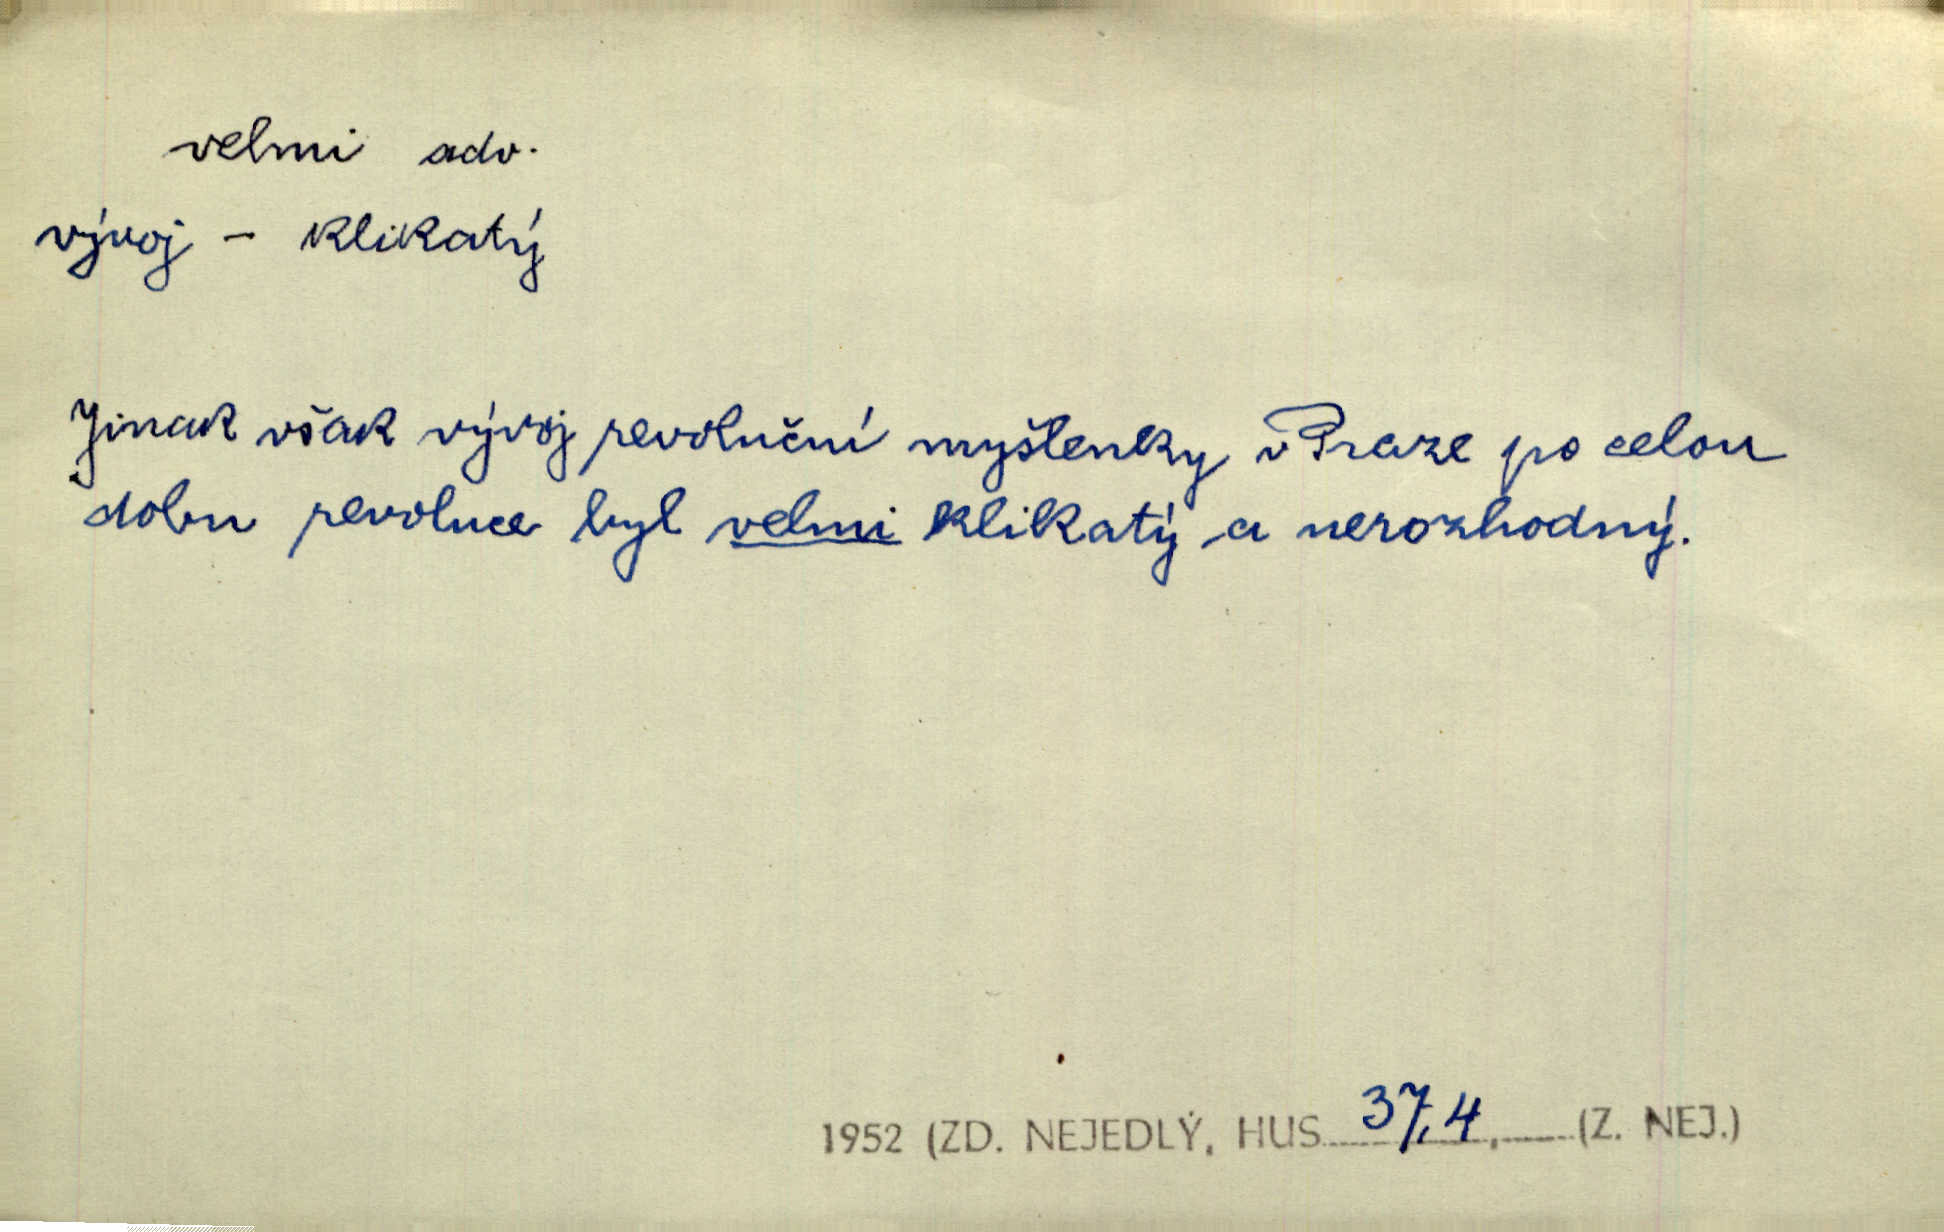 velmi adv.
vývoj - klikatý
Jinak však vývoj revoluční myšlenky v Praze po celou
dobu revoluce byl velmi klikatý a nerozhodný.
1952 (ZD. NEJEDLÝ, HUS 37,4, (Z. NEJ.)